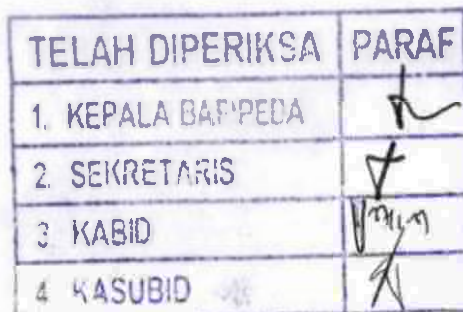 TELAH DIPERIKSA PARAF
1. KEPALA BAPPEDA
2. SEKRETARIS
3 KABID
4 KASUBID